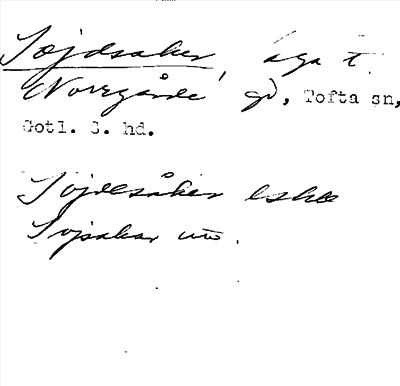 Sojdsaker, äga t.
Norrgårde gd, Tofta sn,
Gotl. S. hd.
Sojdesåker
Sojsakar um.